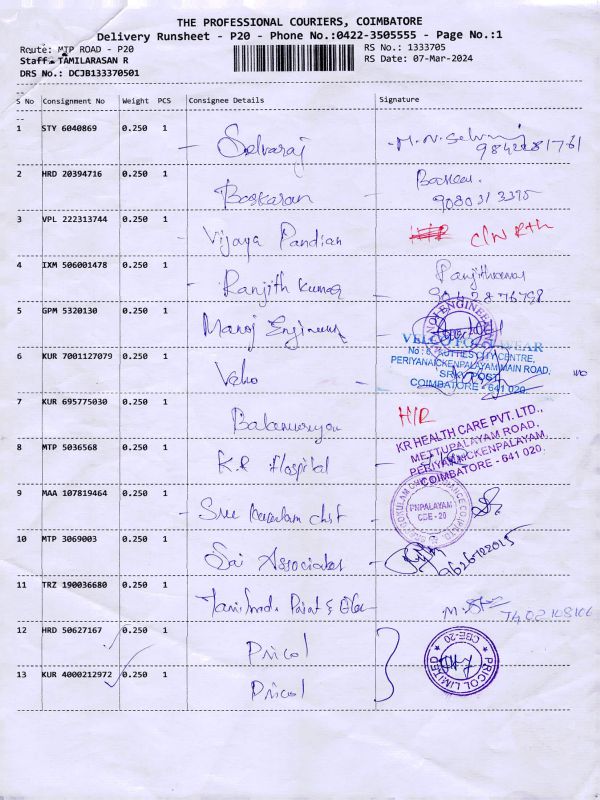 THE PROFESSIONAL COURIERS, COIMBATORE
Delivery Runsheet - P20 - Phone No.:0422-3505555 - Page No.:1
Route: MTP ROAD - P20 RS No.: 1333705
Staff: TAMILARASAN R RS Date: 07-Mar-2024
DRS No.: DCJB133370501
S No Consignment No Weight PCS Consignee Details Signature
1 STY 6040869 0.250 1 - Selvaraj
9842281761
2 HRD 20394716 0.250 1 Baskaran - Baskar.
3 VPL 222313744 0.250 1 Vijaya Pandian
4 IXM 506001478 0.250 1 - Ranjith Kumar - Ranjithkumar
5 GPM 5320130 0.250 1 Manoj Engineers
6 KUR 7001127079 0.250 1
PERIYANAICKENPALAYAM MAIN ROAD,
SRKV POST
COIMBATORE - 641 020.
7 KUR 695775030 0.250 1 Balamurugan
8 MTP 5036568 0.250 1 K.R Hospital
KR HEALTH CARE PVT. LTD.,
METTUPALAYAM ROAD,
PERIYANAICKENPALAYAM,
COIMBATORE - 641 020.
9 MAA 107819464 0.250 1 - Sree
PNPALAYAM
CBE - 20
10 MTP 3069003 0.250 1 Sai Associates
9626702015
11 TRZ 190036680 0.250 1
12 HRD 50627167 0.250 1 Pricol
13 KUR 4000212972 0.250 1 Pricol
PRICOL LIMITED
CBE-20